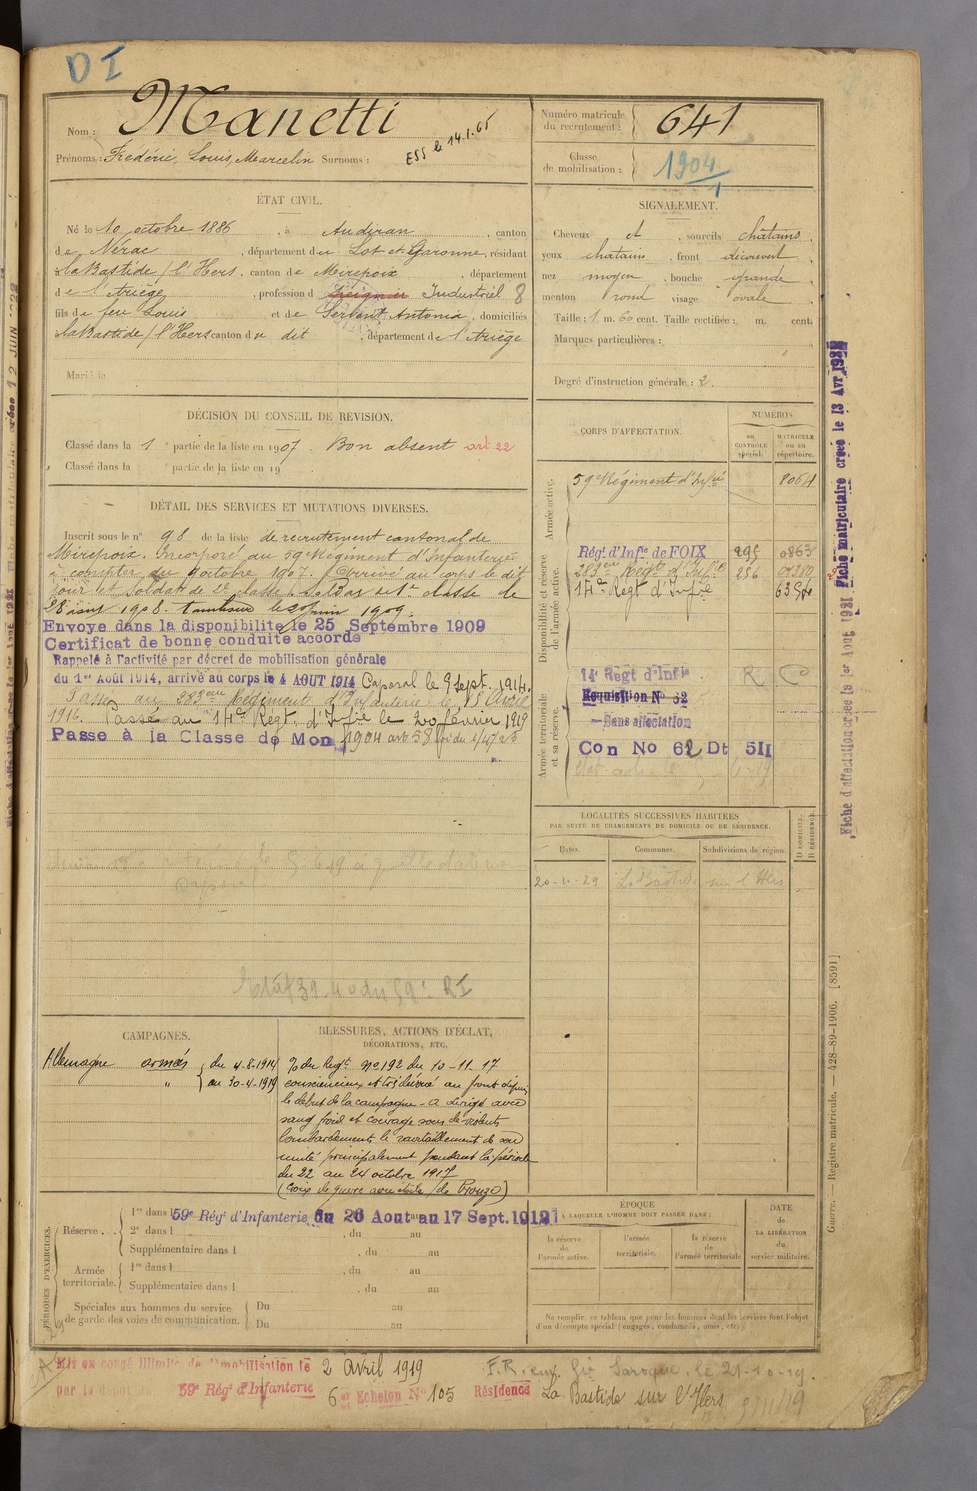 D I
Nom : Manetti
Prénoms : Frédéric, Louis, Marcelin Surnoms :
ESS le 14.1.65
Numéro matricule du recrutement : 641
Classe de mobilisation : 1904
ÉTAT CIVIL.
Né le 10 octobre 1886, à Andiran, canton
de Nérac, département du Lot et Garonne, résidant
à la Bastide s/ l'Hers, canton de Mirepoix, département
de l'Ariège, profession d Industriel 8
fils de feu Louis et de Servent Antonia, domiciliés
à la Bastide s/ l'Hers canton du dit, département de l'Ariège
Marié le
SIGNALEMENT.
Cheveux et, sourcils châtains,
yeux châtains, front découvert,
nez moyen, bouche grande,
menton rond visage ovale
Taille : 1 m. 60 cent. Taille rectifiée : m. cent.
Marques particulières :
Degré d'instruction générale : 2.
DÉCISION DU CONSEIL DE REVISION.
Classé dans la 1e partie de la liste en 1907 Bon absent art 22
Classé dans la e partie de la liste en 19
DÉTAIL DES SERVICES ET MUTATIONS DIVERSES.
Inscrit sous le n° 98 de la liste de recrutement cantonal de
Mirepoix. Incorporé au 59e Régiment d'Infanterie
à compter du 9 octobre 1907. Arrivé au corps le dit
jour et Soldat de 2e classe. Soldat de 1e classe le
28 août 1908. tambour le 20 juin 1909.
Envoye dans la disponibilite le 25 Septembre 1909
Certificat de bonne conduite accordé
Rappelé à l'activité par décret de mobilisation générale
du 1er Août 1914, arrivé au corps le 4 AOUT 1914 Caporal le 9 sept. 1914.
Passé au 283eme Régiment d'Infanterie le 15 Avril
1916. Passé au 14e Régt. d'Infie le 20 février 1919
Passé à la Classe de Mon 1904 art 58 loi du 1/4/23
CORPS D'AFFECTATION.
NUMÉROS
DU CONTRÔLE spécial.
MATRICULE OU DU répertoire.
Armée active.
59e Régiment d'Infie 8064
Disponibilité et réserve de l'armée active.
Régt d'Infie de FOIX 295 0863
283eme Régt d'Infie 256
14e Regt d'Infie
Armée territoriale et sa réserve.
14e Regt d'Infie R
Requisition No 62
Sans affectation
Con No 62 Dt 5II
LOCALITÉS SUCCESSIVES HABITÉES
PAR SUITE DE CHANGEMENTS DE DOMICILE OU DE RÉSIDENCE.
Dates. Communes. Subdivisions de région. D DOMICILE. R RÉSIDENCE.
La Bastide sur l'Hers
CAMPAGNES.
Allemagne armées du 4-8-1914
" au 30-4-1919
BLESSURES, ACTIONS D'ÉCLAT,
DÉCORATIONS, ETC.
O/ du Regt. No 192 du 10-11-17
consciencieux et très dévoué au front depuis
le début de la campagne - a dirigé avec
sang froid et courage sous de violents
bombardements le ravitaillement de son
unité principalement pendant la période
du 22 au 24 octobre 1917
(Croix de guerre avec étoile de Bronze)
PÉRIODES D'EXERCICES.
Réserve. 1re dans l 59e Régt d'Infanterie du 26 Aout au 17 Sept. 1912
2e dans l , du au
Supplémentaire dans l , du au
Armée territoriale. 1re dans l , du au
Supplémentaire dans l , du au
Spéciales aux hommes du service de garde des voies de communication. Du au
Du au
ÉPOQUE
À LAQUELLE L'HOMME DOIT PASSER DANS :
la réserve de l'armée active.
l'armée territoriale.
la réserve de l'armée territoriale
DATE de LA LIBÉRATION du service militaire.
Ne remplir ce tableau que pour les hommes dont les services font l'objet
d'un décompte spécial (engagés, condamnés, omis, etc.)
Mis en congé illimité de démobilisation le 2 avril 1919
par le dépôt du 59e Régt d'Infanterie 6e Echelon No 105 Résidence La Bastide sur l'Hers
Fiche matriculaire créée le 13 Avr 1921
Fiche d'affectation créée le 1er Aout 1921
Guerre. — Registre matricule. — 428-89-1906. [8591]